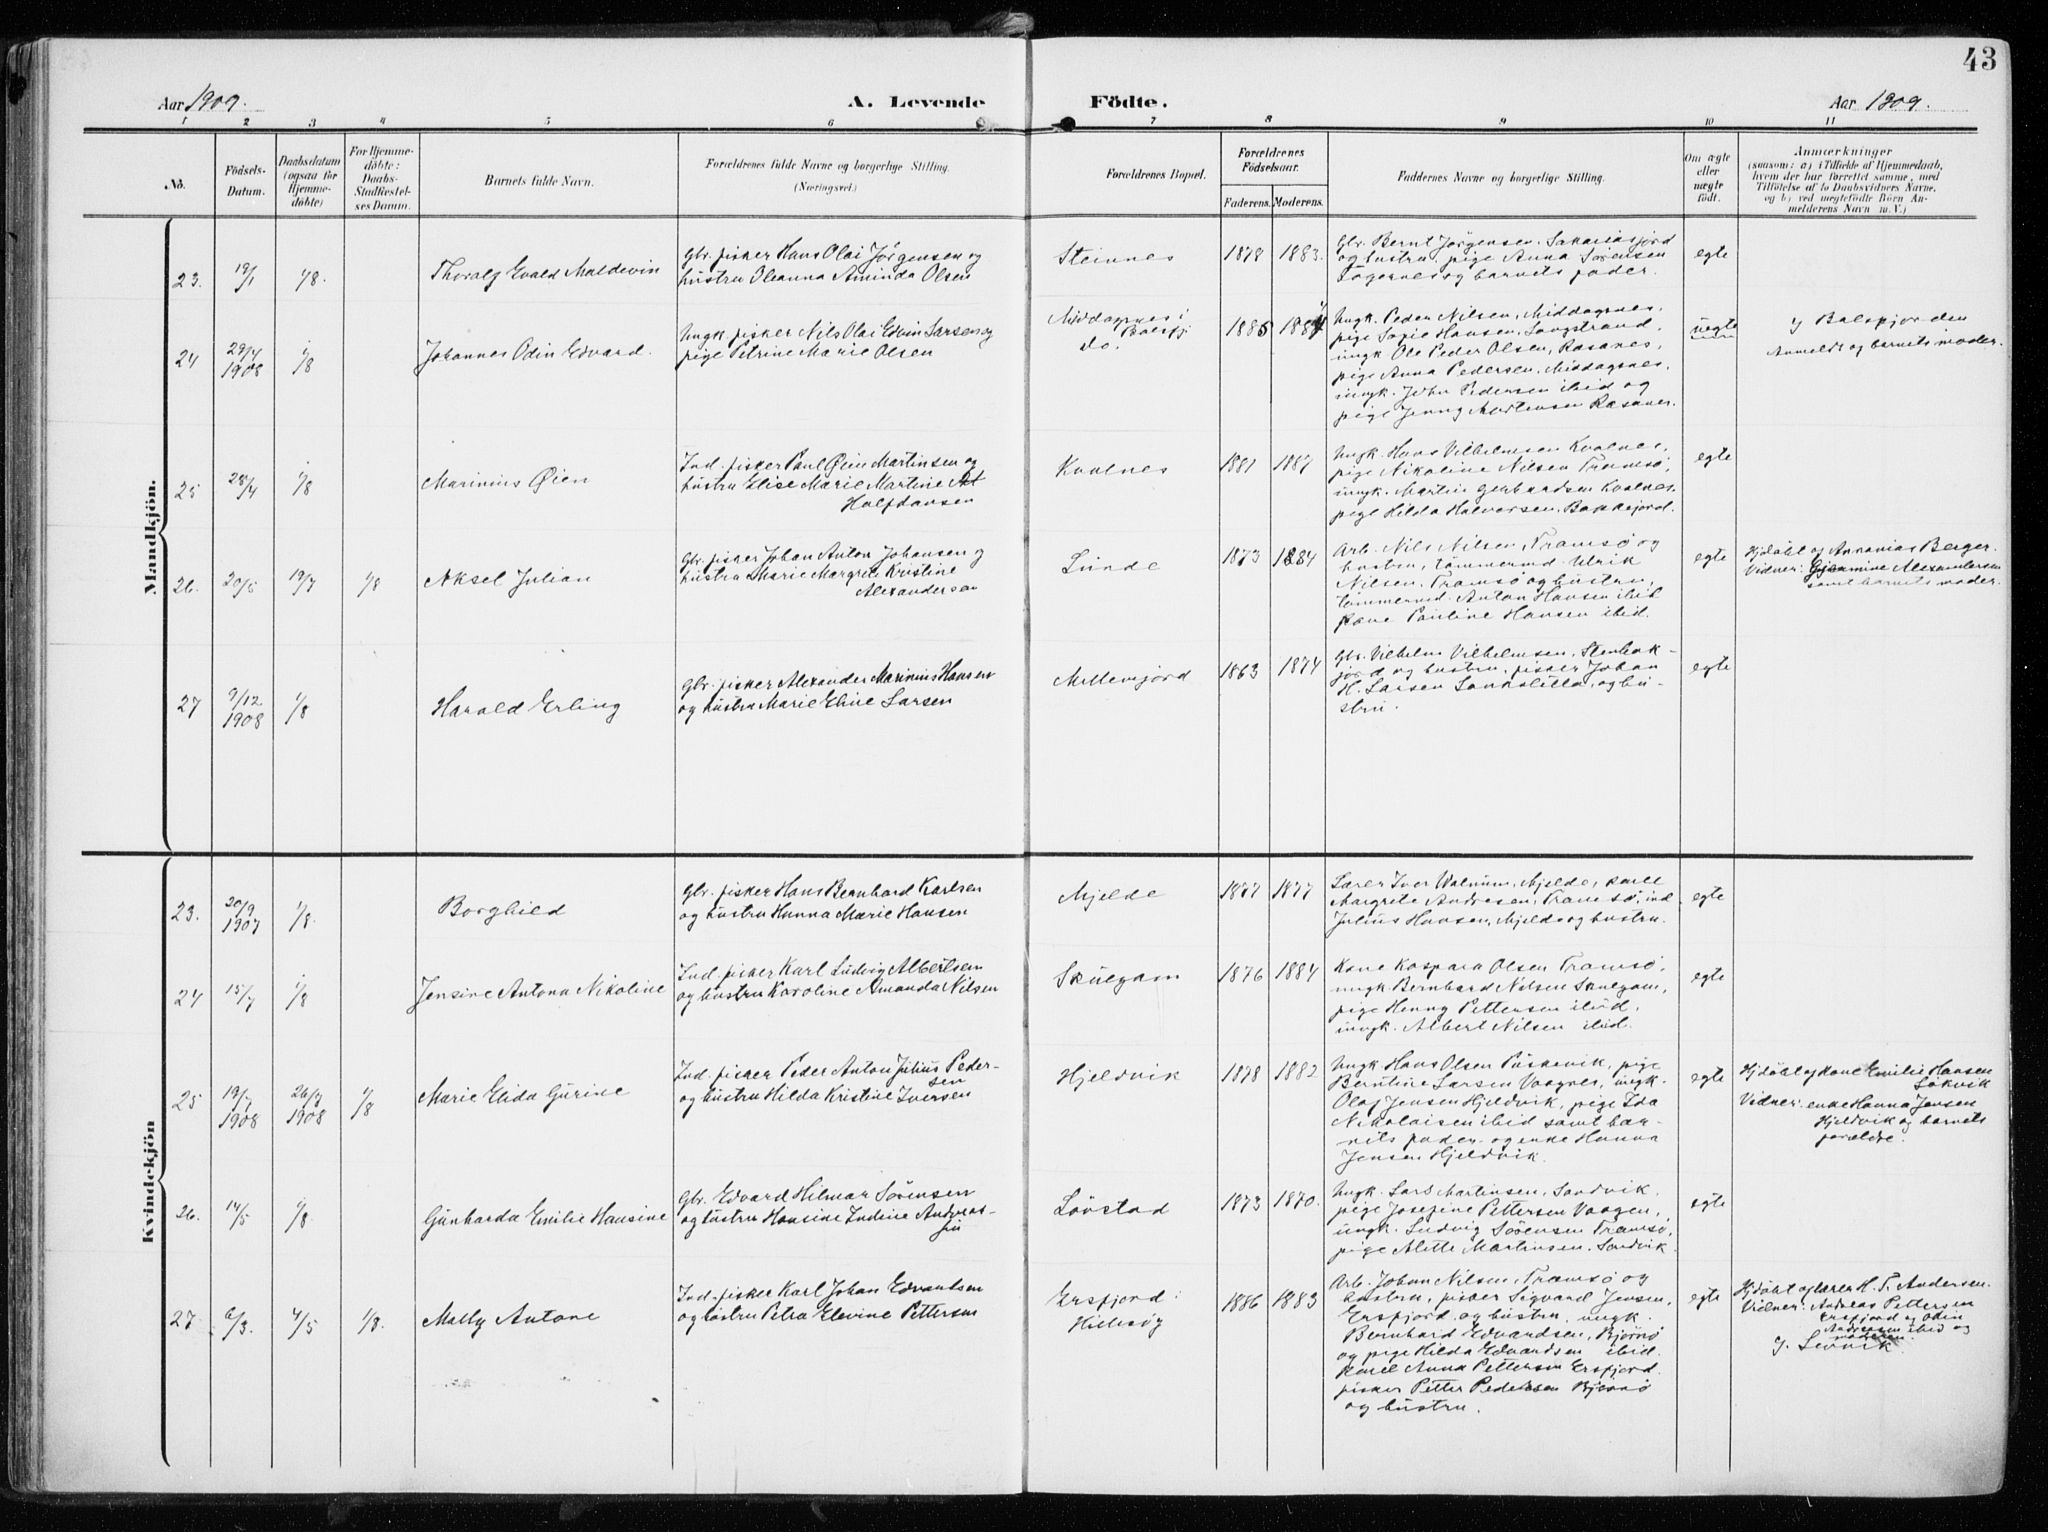 43
Aar 1909.
A. Levende Födte.
Aar 1909.
1 2 3 4 5 6 7 8 9 10 11
No.
Födsels-
Datum.
Daabsdatum
(ogsaa for
Hjemme-
döbte)
For Hjemme-
döbte:
Daabs-
Stadfæstel-
ses Datum.
Barnets fulde Navn.
Forældrenes fulde Navne og borgerlige Stilling.
(Næringsvei.)
Forældrenes Bopæl.
Forældrenes
Födselsaar.
Faderens. Moderens.
Faddernes Navne og borgerlige Stilling.
Om ægte
eller
uægte
födt.
Anmærkninger
(saasom: a) i Tilfælde af Hjemmedaab,
hvem der har forrettet samme, med
Tilföielse af to Daabsvidners Navne.
og b) ved uegtefödte Börn An-
melderens Navn m. V.)
Mandkjön.
23.
19/1
1/8.
Thoralf Evald Maldevin
Gbr. fisker Hans Olai Jørgensen og
hustru Oleanna Aminda Olsen
Steinnes
1878
1883.
Gbr. Bernt Jørgensen, Sakariasjord
og hustru, pige Anna Sørensen
Tøgernes og barnets fader.
egte
24
29/4
1908
1/8
Johannes Odin Edvard.
Ungk. fisker Nils Olai Edvin Larsen og
pige Petrine Marie Olsen
Middagsnes i
Balsfj
do.
1885
1884
Ungk. Peder Nilsen, Middagsnes,
pige Sofie Hansen, Langstrand,
ungk. Ole Peder Olsen, Kasanes,
pige Anna Pedersen, Middagsnes,
ungk. John Pedersen ibid og
pige Jenny Mortensen Kasanes.
uegte
I Balsfjorden
Anmeldt og barnets moder.
25
28/4
1/8
Marinius Øien
Ind. fisker Paul Øien Martinsen og
hustru Elise Marie Martine
Halfdansen
Kvalnes
1881
1887
Ungk. Hans Vilhelmsen Kvalnes,
pige Nikoline Nilsen Tromsø,
ungk. Martin Gerhardsen Kvalnes,
pige Hilda Halvorsen, Bakkejord.
egte
26.
20/5
19/7
1/8
Aksel Julian
Gbr. fisker Johan Anton Johansen og
hustru Marie Margrete Kristine
Alexandersen
Lunde
1873
1884
Arb. Nils Nilsen, Tromsø og
hustru, tømmermd. Ulrik
Nilsen, Tromsø og hustru,
tømmermd. Anton Hansen ibid
kone Pauline Hansen ibid.
egte
Hjdøbt og Annanias Berger.
Vidner: Gjermine Alexandersen
samt barnets moder.
27
9/12
1908
1/8
Harald Erling
Gbr. fisker Alexander Marinius Hansen
og hustru Marie Eline Larsen
Mellemjord
1863
1874
Gbr. Vilhelm Vilhelmsen, Stenbak-
jord og hustru, fisker Johan
H. Larsen og hu-
stru.
egte
Kvindekjön
23.
20/9
1907
1/8.
Borghild
Gbr. fisker Hans Bernhard Karlsen
og hustru Hanna Marie Hansen
Mjelde
1877
1877
Lærer Iver Walnum, Mjelde, kone
Margrete Andresen, Tromsø, ind.
Julius Hansen, Mjelde og hustru.
egte
24
15/7
1/8
Jensine Antona Nikoline
Ind. fisker Karl Ludvig Albertsen
og hustru Karoline Amanda Nilsen
Skulgam
1876
1884
Kone Kaspara Olsen Tromsø,
ungk. Bernhard Nilsen Skulgam,
pige Henny Pettersen ibid,
ungk. Albert Nilsen ibid.
egte
25
19/7
1908
26/7
1908
1/8
Marie Elida Gurine
Ind. fisker Peder Anton Julius Peder-
sen
og hustru Hilda Kristine Iversen
Hjeldvik
1878
1882
Ungk Hans Olsen Fuskevik, pige
Berntine Larsen Vaagnes, ungk.
Olaf Jensen Hjeldvik, pige Ida
Nikolaisen ibid samt bar-
nets fader og enke Hanna
Jensen Hjeldvik.
egte
Hjdøbt og kone Emilie Hansen
Løkvik
Vidner: enke Hanna Jensen
Hjeldvik og barnets
forældre.
26.
14/5
1/8
Gunharda Emilie Hansine
Gbr. Edvard Hilmar Sørensen
og hustru Hansine Indine Andreas-
sen
Løvstad
1873
1870.
Ungk. Lars Martinsen, Sandvik,
pige Josefine Pettersen Vaagen,
ungk. Ludvig Sørensen Tromsø,
pige Alette Martinsen, Sandvik
egte
27
6/3.
4/5
1/8.
Mally Antone
Ind. fisker Karl Johan Edvardsen
og hustru Petra Elevine Pettersen
Ersfjord i
Hillesøy
1886
1883
Arb. Johan Nilsen, Tromsø og
hustru, fisker Sigvard Jensen,
Ersfjord og hustru, ungk.
Bernhard Edvardsen, Bjørnø
og pige Hilda Edvardsen ibid.
kone Anna Pettersen Ersfjord
fisker Petter Pedersen Bjørnø
og hustru.
egte
Hjdøbt og lærer H. T. Andersen.
Vidner: Andreas Pettersen
Ersfjord og Odin
Andresen ibid og
moderen.